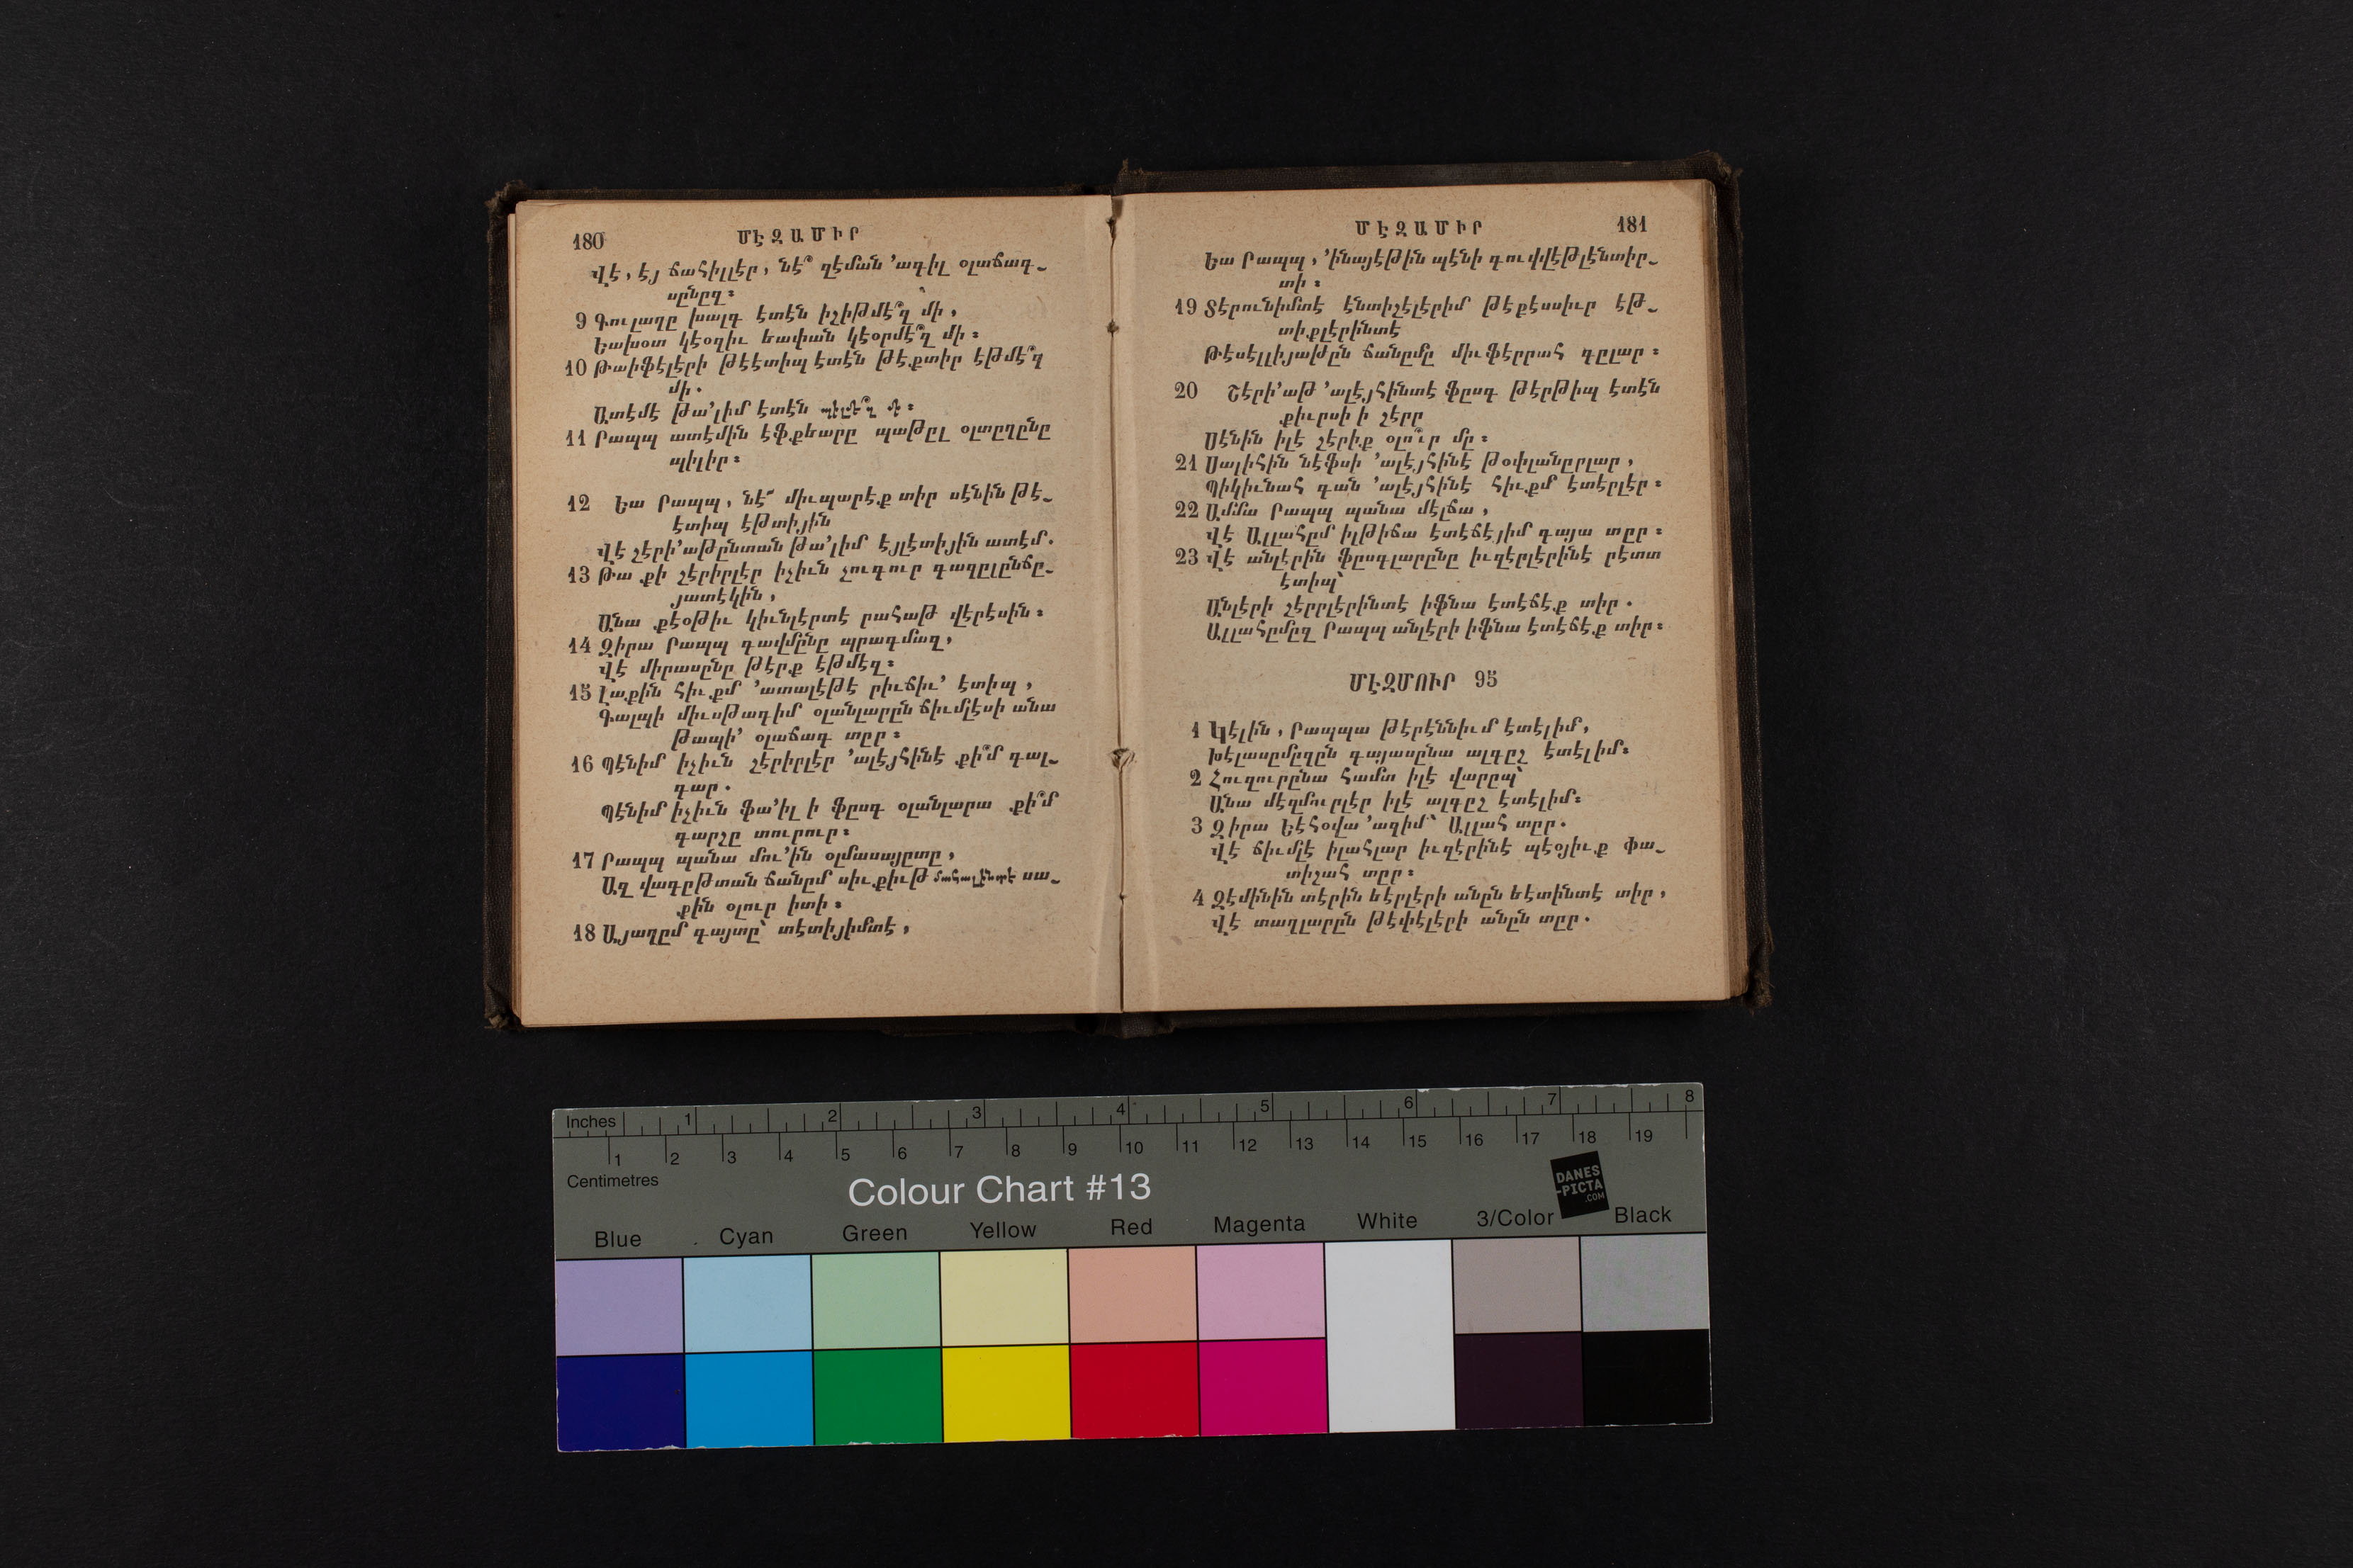 180
ՄԷԶԱՄԻՐ
Վէ, էյ ճահիլլէր, նէ՞ զէման ՚ադիլ օլաճագ֊
սընըզ։
9 Գուլաղը խալգ էտէն իշիթմէ՞զ մի,
Եախօտ կէօզիւ եափան կէօրմէ՞զ մի։
10 Թաիֆէլէրի թէէտիպ էտէն թէքտիր էթմէ՞զ
մի.
Ատէմէ թա՚լիմ էտէն պիլմէ՞զ մի։
11 Րապպ ատէմին էֆքեարը պաթըլ օլտըղընը
պիլիր։
12 Եա Րապպ, նէ՜ միւպարէք տիր սէնին թէ֊
էտիպ էթտիյին
Վէ շէրի՚աթընտան թա՚լիմ էյլէտիյին ատէմ.
13 Թա քի շէրիրլէր իչիւն չուգուր գազըլընճը֊
յատէկին,
Անա քէօթիւ կիւնլէրտէ րահաթ վէրէսին։
14 Զիրա Րապպ գավմընը պրագմազ,
Վէ միրասընը թէրք էթմէզ։
15 Լաքին հիւքմ ՚ատալէթէ րիւճիւ՚ էտիպ,
Գալպի միւսթագիմ օլանլարըն ճիւմլէսի անա
թապի՚ օլաճագ տըր։
16 Պէնիմ իչիւն շէրիրլէր ՚ալէյհինէ քի՞մ գալ֊
գար.
Պէնիմ իչիւն ֆա՚իլ ի ֆըսգ օլանլարա քի՞մ
գարշը տուրուր։
17 Րապպ պանա մու՚ին օլմասայըտը,
Ազ վագըթտան ճանըմ սիւքիւթ մահալլինտէ սա֊
քին օլուր իտի։
18 Այաղըմ գայտը՝ տէտիյիմտէ,
ՄԷԶԱՄԻՐ
181
Եա Րապպ, ՚ինայէթին պէնի գուվվէթլէնտիր֊
տի։
19 Տէրունիմտէ էնտիշէլէրիմ թէքէսսիւր էթ֊
տիքլէրինտէ
Թէսէլլիյաթըն ճանըմը միւֆէրրահ գըլար։
20 Շէրի՚աթ ՚ալէյհինտէ ֆըսգ թէրթիպ էտէն
քիւրսի ի շէրր
Սէնին իլէ շէրիք օլո՞ւր մը։
21 Սալիհին նէֆսի ՚ալէյհինէ թօփլանըրլար,
Պիկիւնահ գան ՚ալէյհինէ հիւքմ էտէրլէր։
22 Ամմա Րապպ պանա մէլճա,
Վէ Ալլահըմ իլթիճա էտէճէյիմ գայա տըր։
23 Վէ անլէրին ֆըսգլարընը իւզէրլէրինէ րէտտ
էտիպ՝
Անլէրի շէրրլէրինտէ իֆնա էտէճէք տիր.
Ալլահըմըզ Րապպ անլէրի իֆնա էտէճէք տիր։
ՄԷԶՄՈՒՐ 95
1 Կէլին, Րապպա թէրէննիւմ էտէլիմ,
Խէլասըմըզըն գայասընա ալգըշ էտէլիմ։
2 Հուզուրընա համտ իլէ վարըպ՝
Անա մէզմուրլէր իլէ ալգըշ էտէլիմ։
3 Զիրա Եէհօվա ՚ազիմ՝ Ալլահ տըր.
Վէ ճիւմլէ իլահլար իւզէրինէ պէօյիւք փա֊
տիշահ տըր։
4 Զէմինին տէրին եէրլէրի անըն եէտինտէ տիր,
Վէ տաղլարըն թէփէլէրի անըն տըր.
Inches 1 2 3 4 5 6 7 8
1 2 3 4 5 6 7 8 9 10 11 12 13 14 15 16 17 18 19
Centimetres
Colour Chart #13
DANES
-PICTA
.COM
Blue Cyan Green Yellow Red Magenta White 3/Color Black